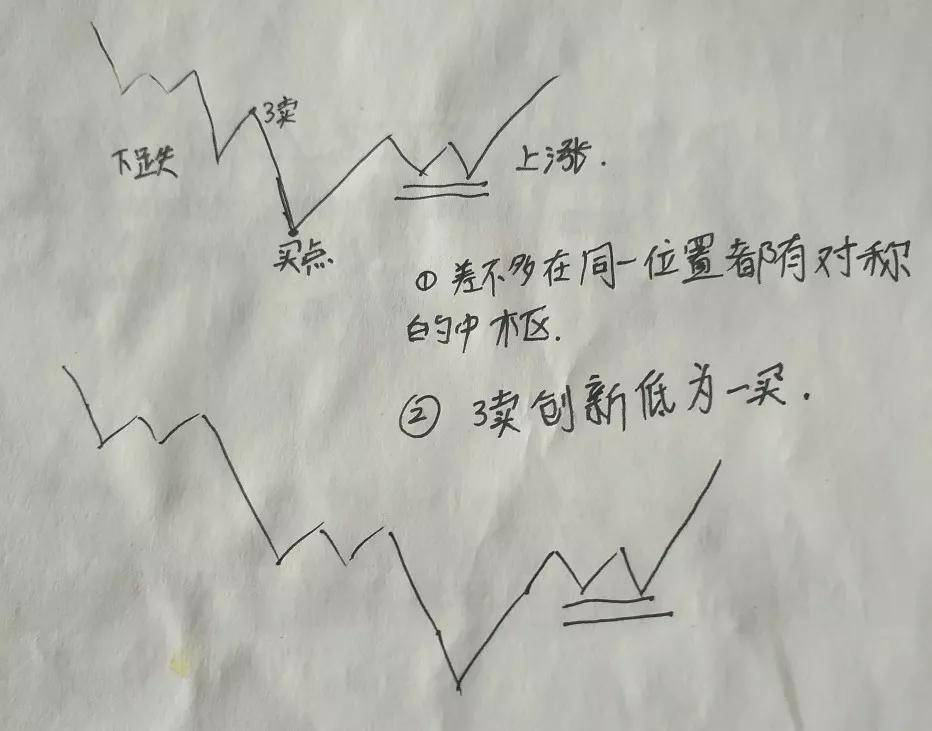 3卖
下跌
上涨.
买点
① 差不多在同一位置都有对称
的中枢.
② 3卖创新低为一买.